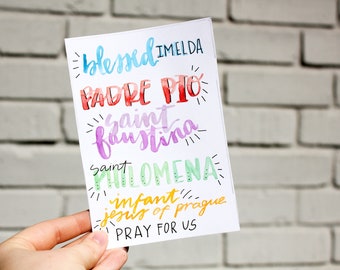 blessed IMELDA
PADRE PIO
saint
faustina
saint
PHILOMENA
infant
jesus of prague
PRAY FOR US